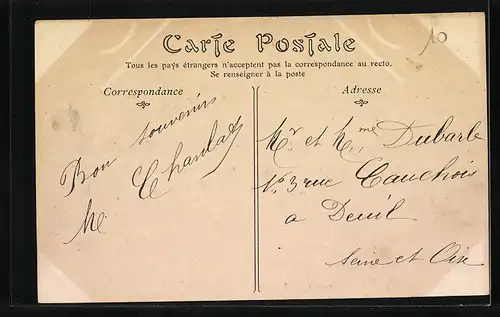 10
Carte Postale
Tous les pays étrangers n'acceptent pas la correspondance au recto.
Se renseigner à la poste
Correspondance
Bon souvenir
Adresse
Mr et Mme Dubarle
rue Cauchois
a Deuil
Seine et Oise